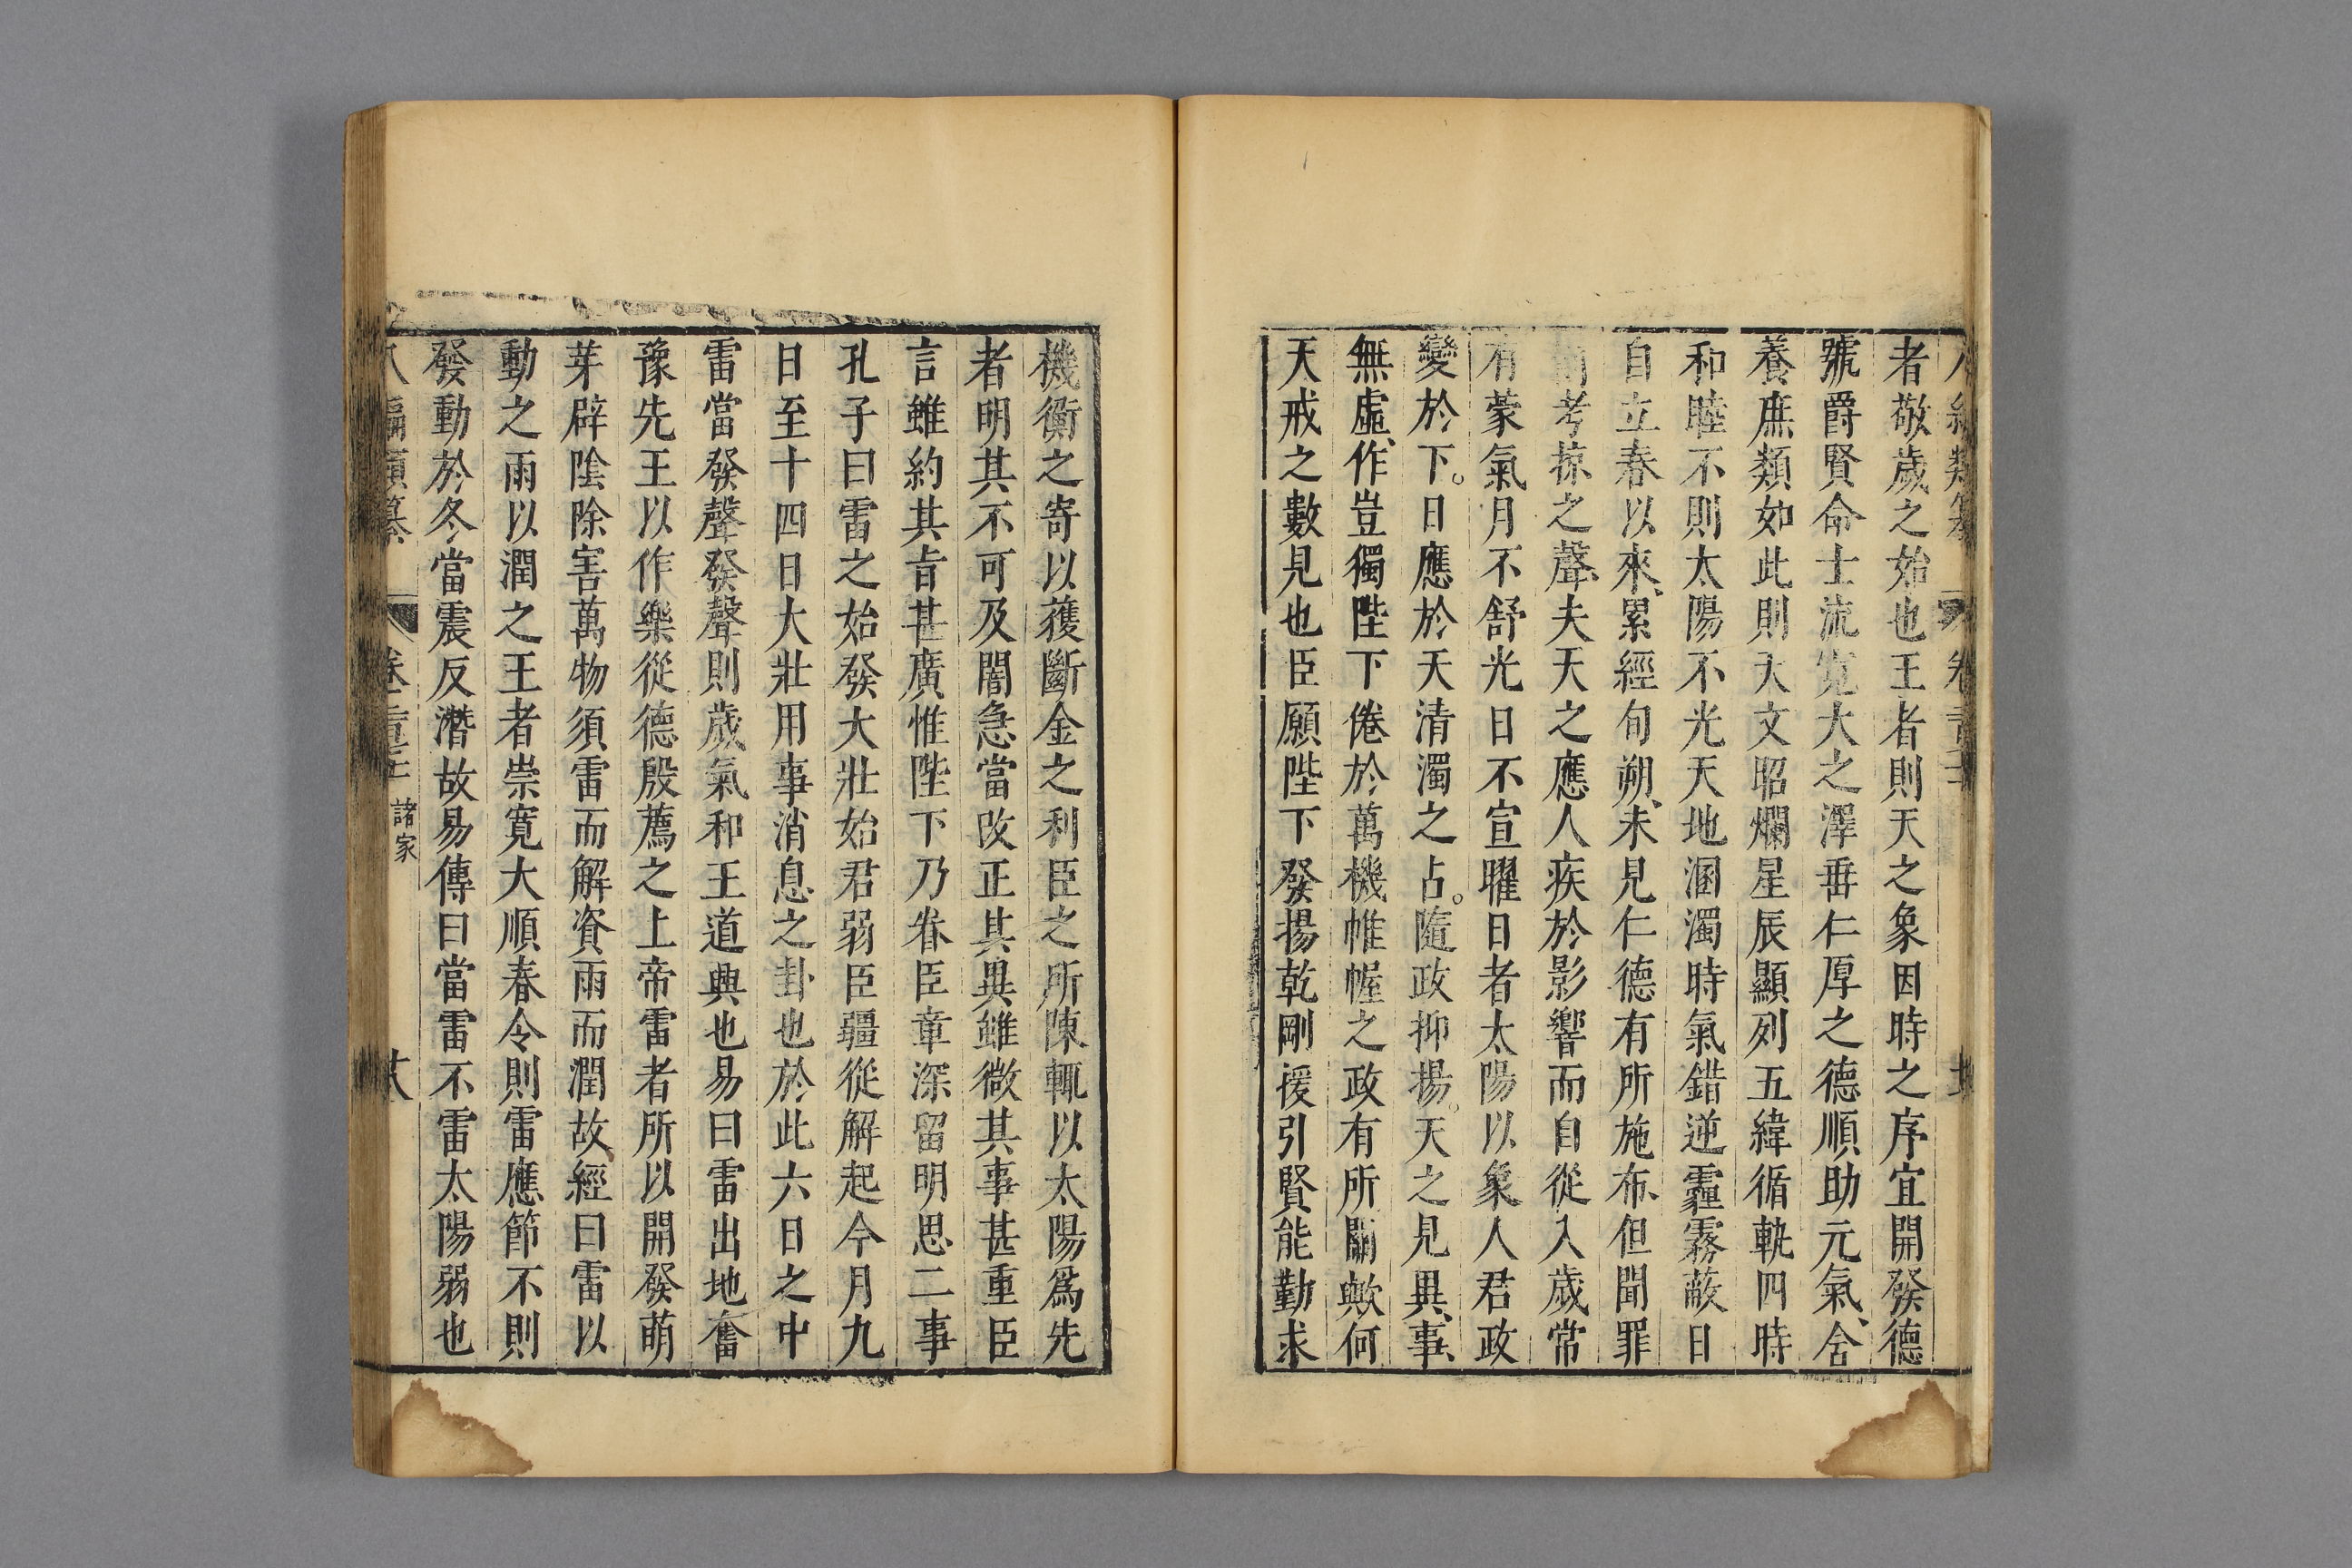 者敬歲之始也王者則天之象因時之序宜開發德
號爵賢命士流寬大之澤垂仁厚之德順助元氣、含
養庶類如此則天文昭爛星辰顯列五緯循軌四時
和睦不則太陽不光天地溷濁時氣錯逆霾霧蔽日
自立春以來、累經旬朔、未見仁德有所施布、但聞罪
考掠之聲、夫天之應人疾於影響而自從入歲常
有蒙氣月不舒光日不宣曜日者太陽以象人君政
變於下。日應於天清濁之占。隨政抑揚。天之見異、事、
無虛、作豈獨陛下倦於萬機帷幄之政有所闕歟何
天戒之數見也臣願陛下發揚乾剛援引賢能勤求
機衡之寄以獲斷金之利臣之所陳輒以太陽爲先
者明其不可及闇急當改正其異雖微其事甚重臣
言雖約其旨甚廣惟陛下乃眷臣章深留明思二事
孔子曰雷之始發大壯始君弱臣疆從解起今月九
日至十四日大壯用事消息之卦也於此六日之中
雷當發聲發聲則歲氣和王道興也易曰雷出地奮
豫先王以作樂從德殷薦之上帝雷者所以開發萌
芽辟陰除害萬物須雷而解資雨而潤故經曰雷以
動之雨以潤之王者崇寬大順春令則雷應節不則
發動於冬當震反潛故易傳曰當雷不雷太陽弱也
八編類纂 卷二百 諸家 十八